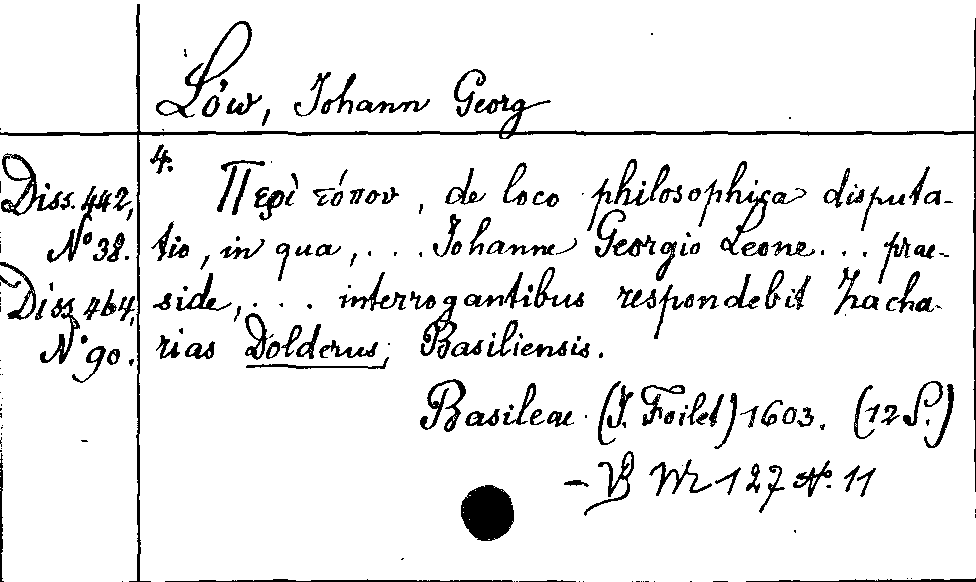 Löw, Johann Georg
4.
Diss. 442, Περὶ τόπου, de loco philosophica disputa-
No 38. tio, in qua, . . . Johanne Georgio Leone . . . prae-
Diss. 464, side, . . . interrogantibus respondebit Zacha-
No 90. rias Dolderus, Basiliensis.
Basileae (J. Foilet) 1603. (12 S.)
– VB 127 No. 11